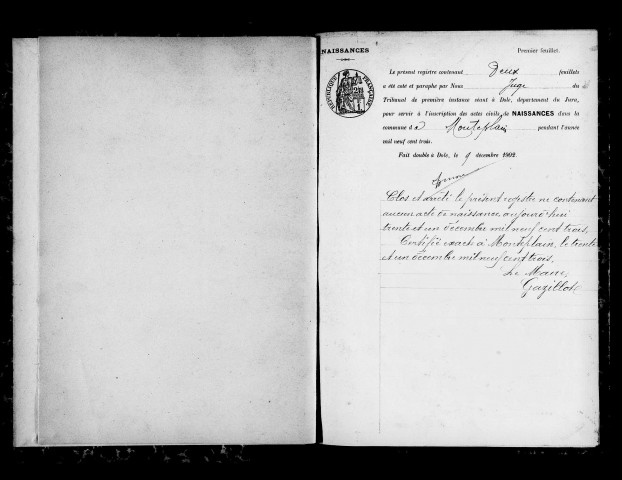 NAISSANCES
Premier feuillet.
RÉPUBLIQUE FRANÇAISE
Le présent registre contenant Deux feuillets
a été coté et paraphé par Nous Juge du
Tribunal de première instance séant à Dole, département du Jura,
pour servir à l'inscription des actes civils de NAISSANCES dans la
commune d e Monteplain pendant l'année
mil neuf cent trois.
Fait double à Dole, le 9 décembre 1902.
Clos et arrêté le présent registre ne contenant
aucun acte de naissance, aujourd'hui
trente et un décembre mil neuf cent trois,
Certifié exact à Monteplain, le trente
et un décembre mil neuf cent trois,
Le Maire,